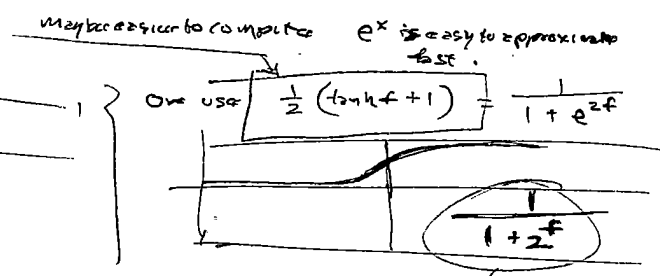 maybe easier to compute e^x is easy to approximate
fast.
1 } Or use 1/2 (tanh f + 1) = 1/(1 + e^{2f})
1/(1 + 2^f)